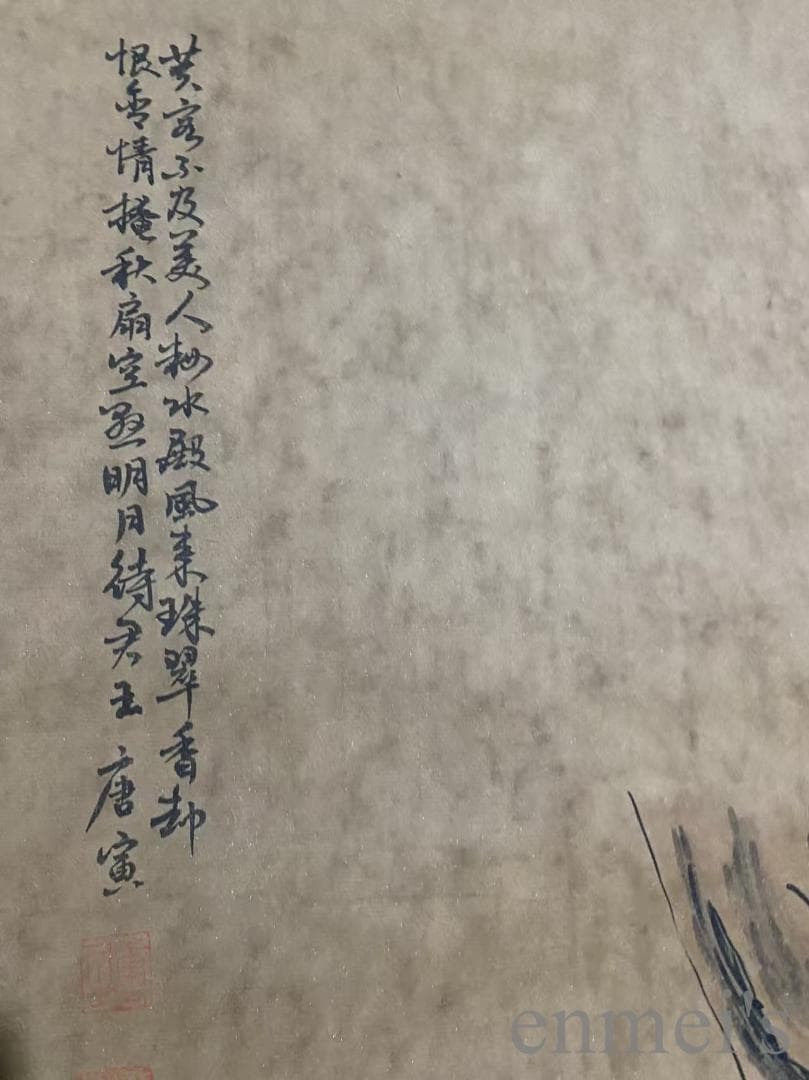 芙容不及美人粧水殿風來珠翠香却
恨含情掩秋扇空懸明月待君王 唐寅
enmei's